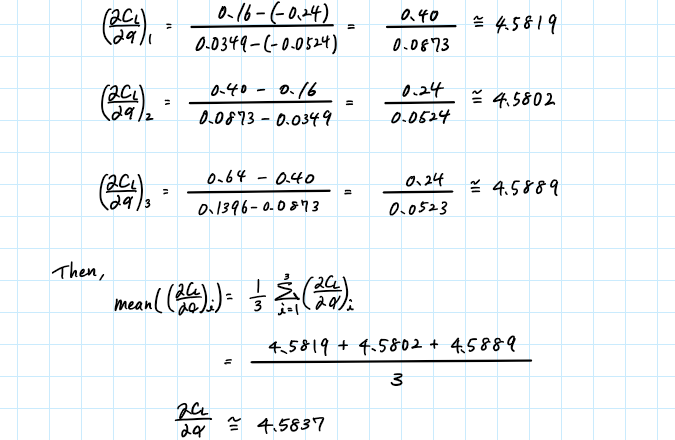 (∂CL/∂α)₁ = 0.16-(-0.24) / 0.0349-(-0.0524) = 0.40 / 0.0873 ≅ 4.5819
(∂CL/∂α)₂ = 0.40 - 0.16 / 0.0873 - 0.0349 = 0.24 / 0.0524 ≅ 4.5802
(∂CL/∂α)₃ = 0.64 - 0.40 / 0.1396-0.0873 = 0.24 / 0.0523 ≅ 4.5889
Then,
mean((∂CL/∂α)ᵢ) = 1/3 ∑³ᵢ₌₁ (∂CL/∂α)ᵢ
= 4.5819 + 4.5802 + 4.5889 / 3
∂CL/∂α ≅ 4.5837